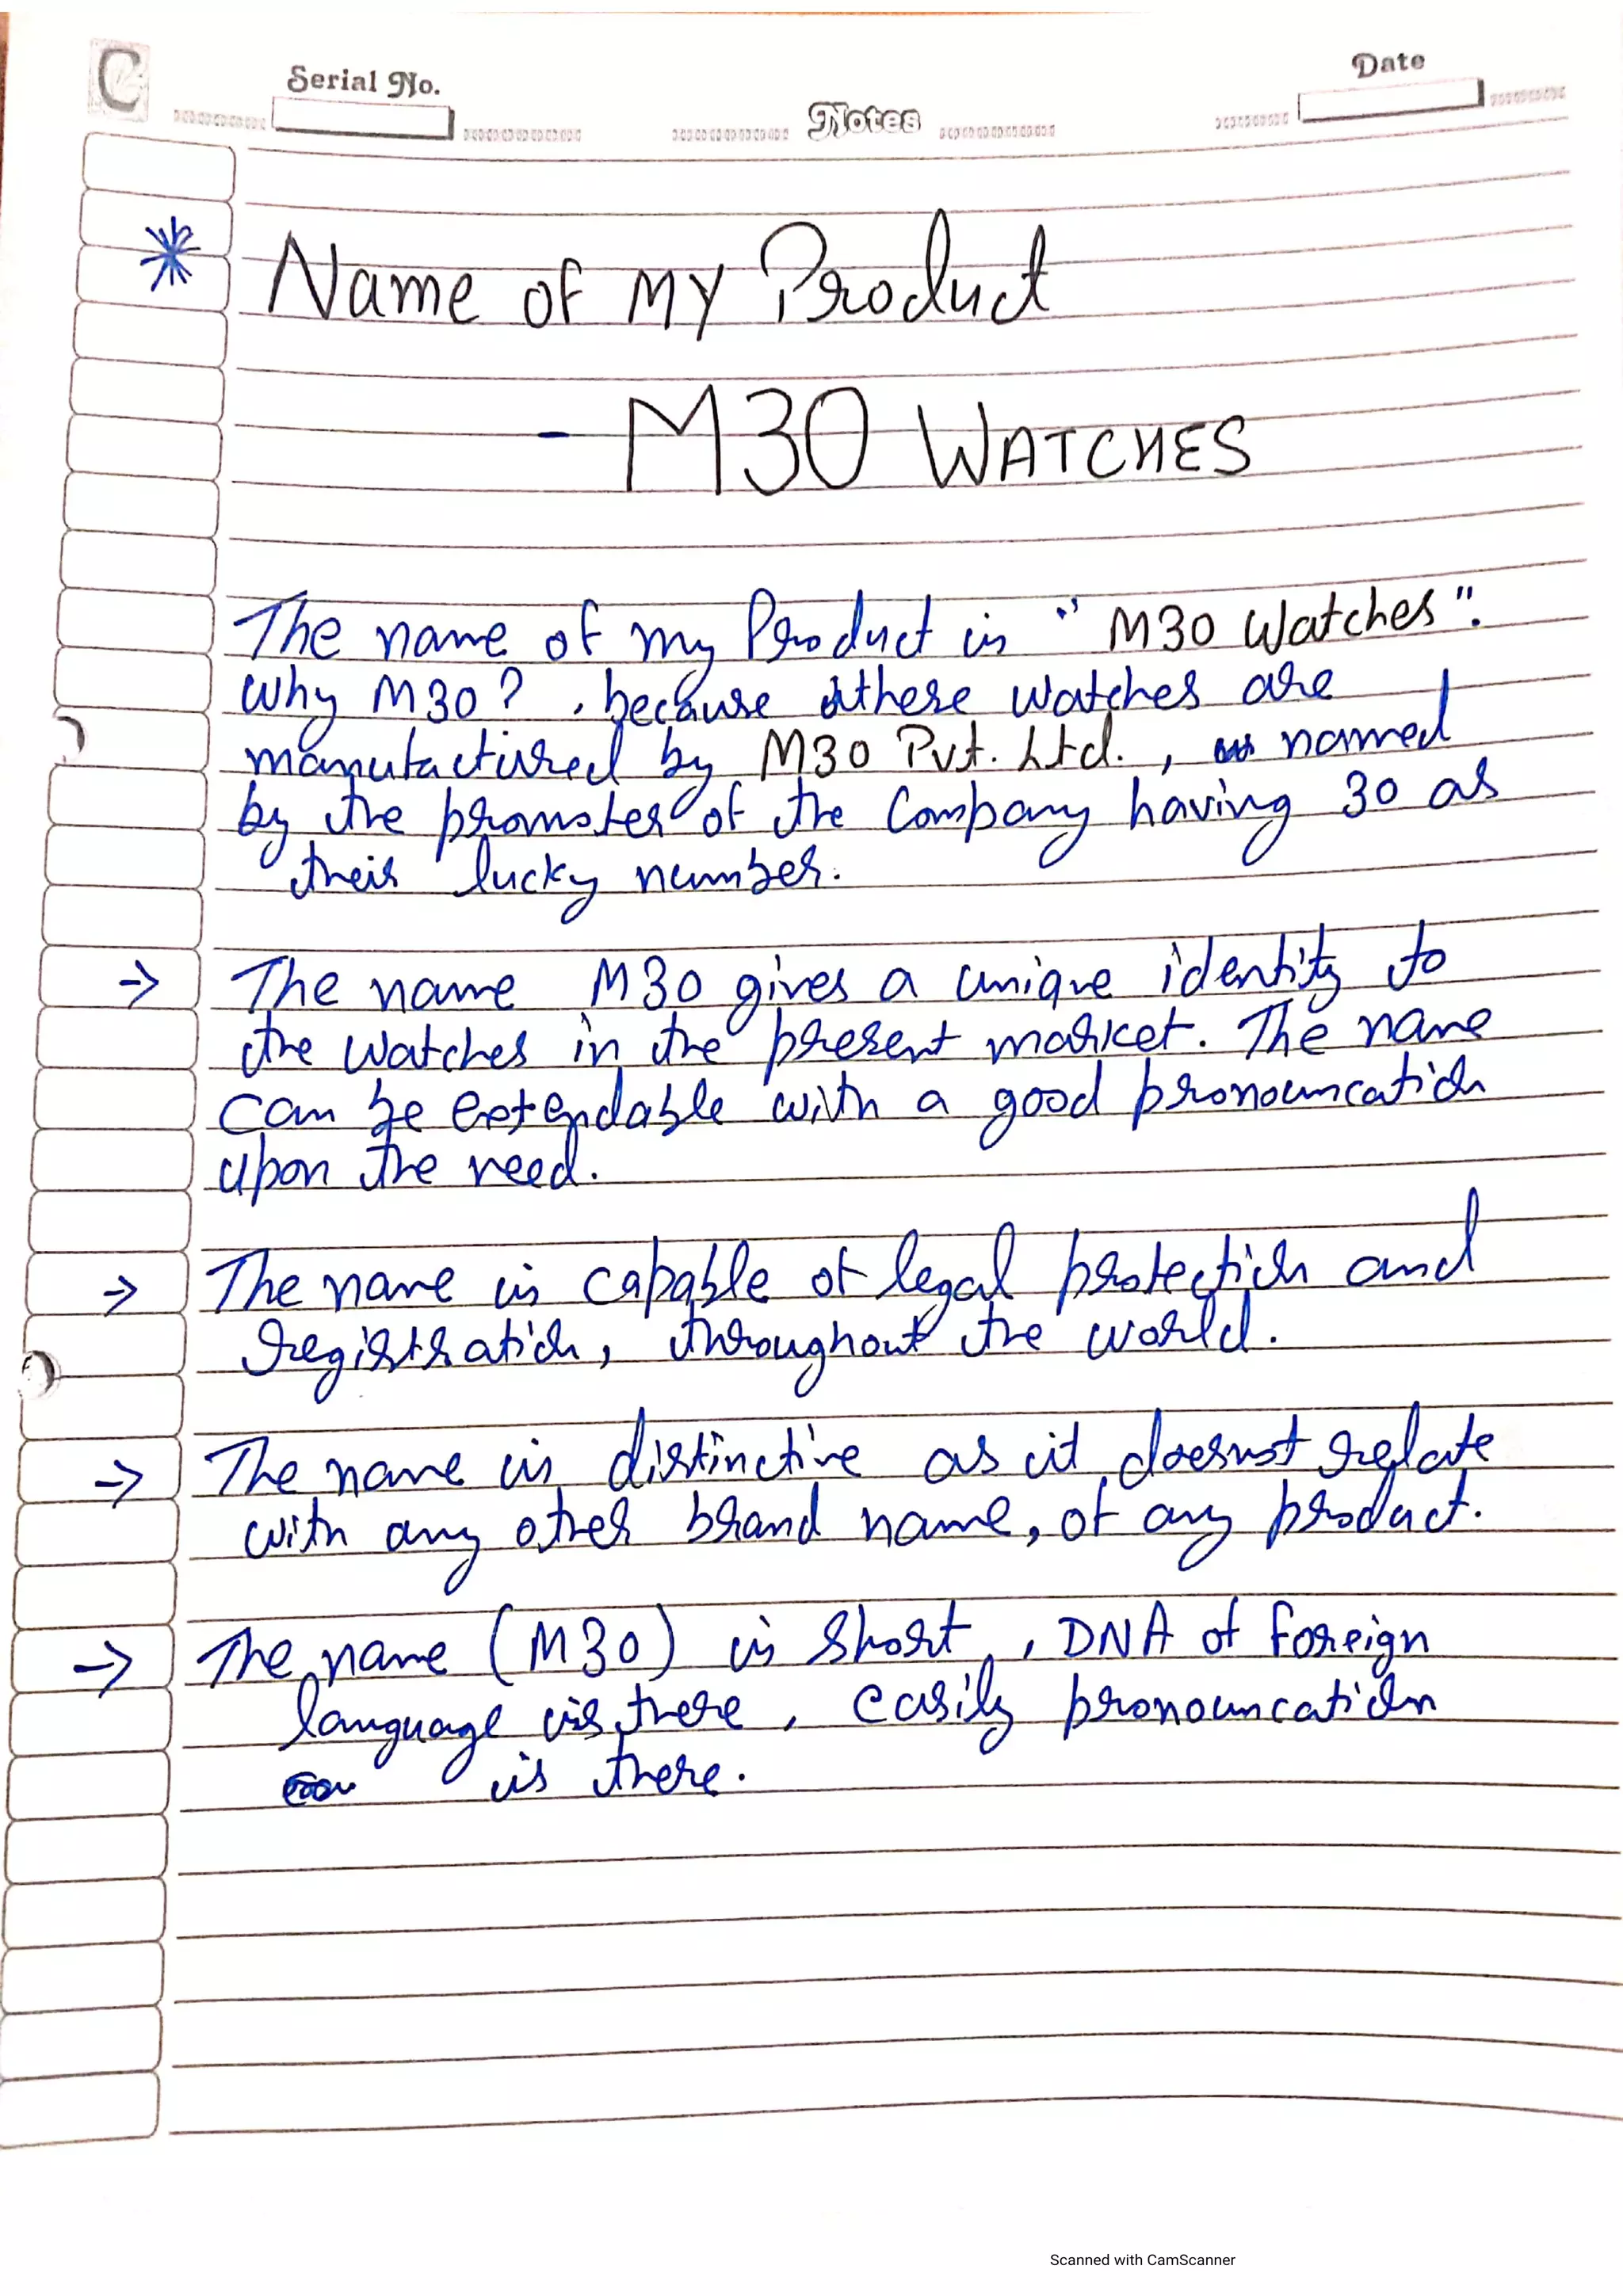 C
Serial No.
Notes
Date
* Name of My Product
- M30 WATCHES
The name of my Product is "M30 Watches".
Why M30? , because these watches are
manufactured by M30 Pvt. Ltd. , named
by the promoter of the Company having 30 as
their lucky number.
-> The name M30 gives a unique identity to
the watches in the present market. The name
can be extendable with a good pronouncation
upon the need.
-> The name is capable of legal protection and
registration, throughout the world.
-> The name is distinctive as it doesnot relate
with any other brand name, of any product.
-> The name (M30) is short , DNA of foreign
language is there , easily pronouncation
is there.
Scanned with CamScanner